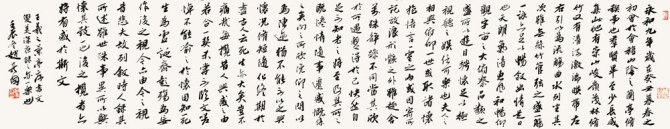 永和九年歲在癸丑暮春之
初會于會稽山陰之蘭亭脩禊
事也群賢畢至少長咸
集此地有崇山峻領茂林脩
竹又有清流激湍映帶左
右引以為流觴曲水列坐其
次雖無絲竹管弦之盛
一觴一詠亦足以暢敘幽情是日
也天朗氣清惠風和暢仰
觀宇宙之大俯察品類之
盛所以遊目騁懷足以極
視聽之娛信可樂也夫人之
相與俯仰一世或取諸懷
抱悟言一室之內或因寄所
託放浪形骸之外雖趣舍
萬殊靜躁不同當其欣
於所遇暫得於己快然自足不
知老之將至及其所
之既惓情隨事遷感慨係
之矣向之所欣俛仰之間以
為陳迹猶不能不以之興
懷況脩短隨化終期於
盡古人云死生亦大矣豈不
痛哉每攬昔人興感之由
若合一契未嘗不臨文嗟
悼不能喻之於懷固知死
生為虛誕齊彭殤為妄
作後之視今亦由今之視
昔悲夫故列敘時人錄其
所述雖世殊事異所以興
懷其致一也後之攬者亦
將有感於斯文
王羲之蘭亭序